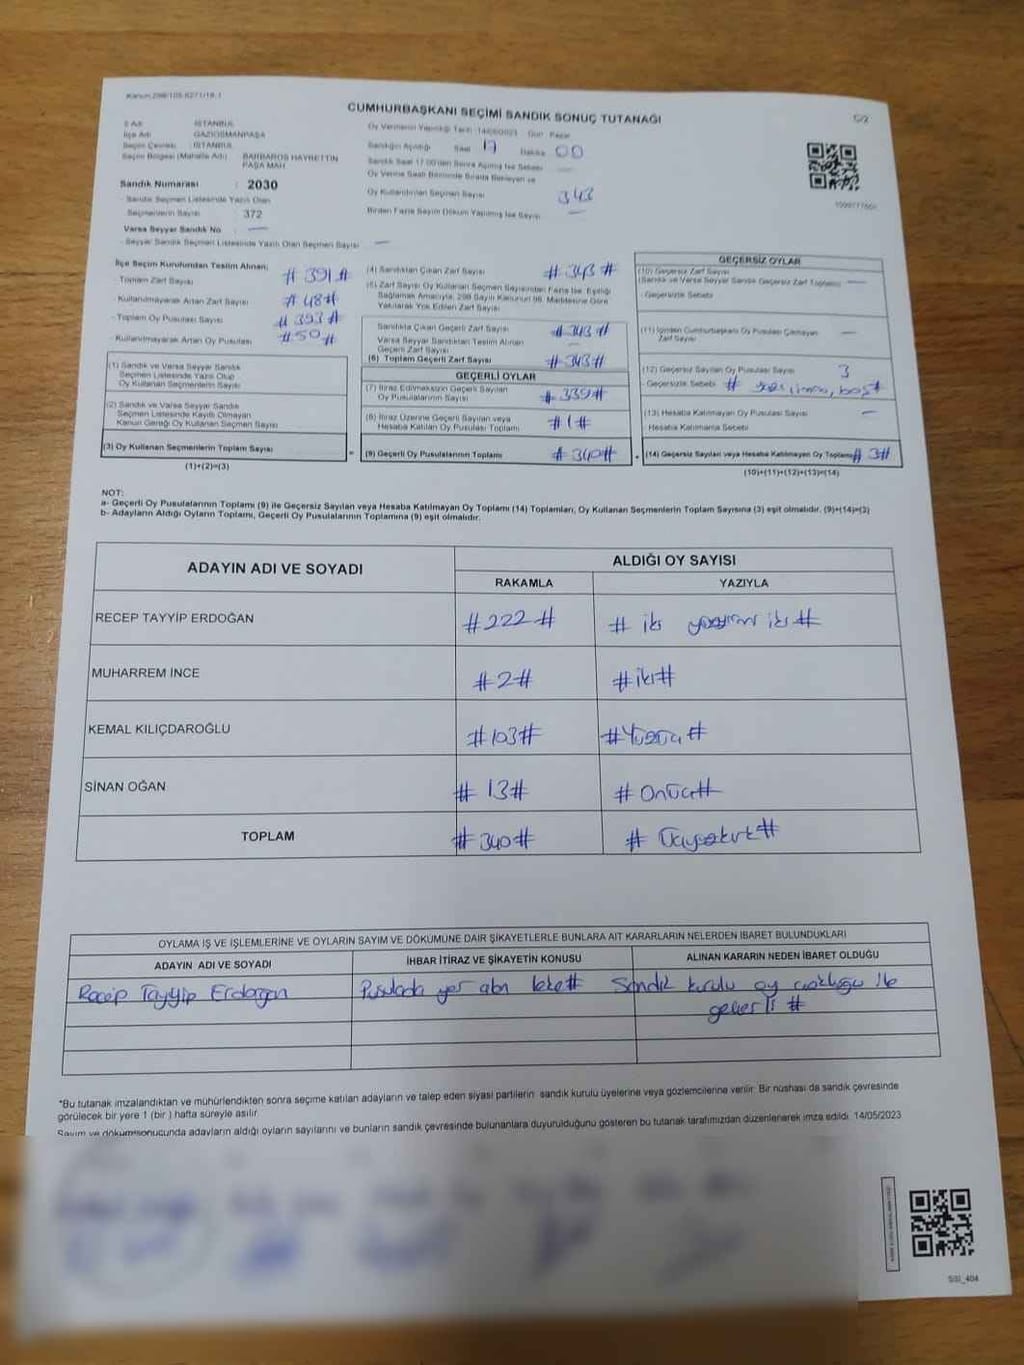 Kanun 298/105-6271/18.1
CUMHURBAŞKANI SEÇİMİ SANDIK SONUÇ TUTANAĞI
C/2
İl Adı : İSTANBUL
İlçe Adı : GAZİOSMANPAŞA
Seçim Çevresi : İSTANBUL
Seçim Bölgesi (Mahalle Adı) : BARBAROS HAYRETTİN PAŞA MAH
Sandık Numarası : 2030
Sandık Seçmen Listesinde Yazılı Olan
Seçmenlerin Sayısı : 372
Varsa Seyyar Sandık No : —
- Seyyar Sandık Seçmen Listesinde Yazılı Olan Seçmen Sayısı —
Oy Vermenin Yapıldığı Tarih 14/05/2023 Gün Pazar
Sandığın Açıldığı Saat 17 Dakika 00
Sandık Saat 17.00'den Sonra Açılmış İse Sebebi
Oy Verme Saati Bitiminde Sırada Bekleyen ve
Oy Kullandırılan Seçmen Sayısı 343
Birden Fazla Sayım Döküm Yapılmış İse Sayısı —
İlçe Seçim Kurulundan Teslim Alınan;
Toplam Zarf Sayısı # 391 #
- Kullanılmayarak Artan Zarf Sayısı # 48 #
- Toplam Oy Pusulası Sayısı # 393 #
- Kullanılmayarak Artan Oy Pusulası # 50 #
(1) Sandık ve Varsa Seyyar Sandık
Seçmen Listesinde Yazılı Olup
Oy Kullanan Seçmenlerin Sayısı
(2) Sandık ve Varsa Seyyar Sandık
Seçmen Listesinde Kayıtlı Olmayan
Kanun Gereği Oy Kullanan Seçmen Sayısı
(3) Oy Kullanan Seçmenlerin Toplam Sayısı
=
(1)+(2)=(3)
(4) Sandıktan Çıkan Zarf Sayısı # 343 #
(5) Zarf Sayısı Oy Kullanan Seçmen Sayısından Fazla İse, Eşitliği
Sağlamak Amacıyla, 298 Sayılı Kanunun 98. Maddesine Göre
Yakılarak Yok Edilen Zarf Sayısı
Sandıkta Çıkan Geçerli Zarf Sayısı # 343 #
Varsa Seyyar Sandıktan Teslim Alınan
Geçerli Zarf Sayısı —
(6) Toplam Geçerli Zarf Sayısı # 343 #
GEÇERLİ OYLAR
(7) İtiraz Edilmeksizin Geçerli Sayılan
Oy Pusulalarının Sayısı # 339 #
(8) İtiraz Üzerine Geçerli Sayılan veya
Hesaba Katılan Oy Pusulası Toplamı # 1 #
(9) Geçerli Oy Pusulalarının Toplamı # 340 #
+
GEÇERSİZ OYLAR
(10) Geçersiz Zarf Sayısı
(Sandık ve Varsa Seyyar Sandık Geçersiz Zarf Toplamı) —
- Geçersizlik Sebebi
(11) İçinden Cumhurbaşkanı Oy Pusulası Çıkmayan
Zarf Sayısı —
(12) Geçersiz Sayılan Oy Pusulası Sayısı 3
- Geçersizlik Sebebi #
(13) Hesaba Katılmayan Oy Pusulası Sayısı —
- Hesaba Katılmama Sebebi
(14) Geçersiz Sayılan veya Hesaba Katılmayan Oy Toplamı # 3 #
(10)+(11)+(12)+(13)=(14)
NOT:
a- Geçerli Oy Pusulalarının Toplamı (9) ile Geçersiz Sayılan veya Hesaba Katılmayan Oy Toplamı (14) Toplamları, Oy Kullanan Seçmenlerin Toplam Sayısına (3) eşit olmalıdır. (9)+(14)=(3)
b- Adayların Aldığı Oyların Toplamı, Geçerli Oy Pusulalarının Toplamına (9) eşit olmalıdır.
ADAYIN ADI VE SOYADI
ALDIĞI OY SAYISI
RAKAMLA YAZIYLA
RECEP TAYYİP ERDOĞAN # 222 # # iki yüzyirmi iki #
MUHARREM İNCE # 2 # # iki #
KEMAL KILIÇDAROĞLU # 103 # # Yüzüç #
SİNAN OĞAN # 13 # # Onüç #
TOPLAM # 340 # # Üçyüzkırk #
OYLAMA İŞ VE İŞLEMLERİNE VE OYLARIN SAYIM VE DÖKÜMÜNE DAİR ŞİKAYETLERLE BUNLARA AİT KARARLARIN NELERDEN İBARET BULUNDUKLARI
ADAYIN ADI VE SOYADI İHBAR İTİRAZ VE ŞİKAYETİN KONUSU ALINAN KARARIN NEDEN İBARET OLDUĞU
Recep Tayyip Erdoğan Pusulada yer alan leke # Sandık kurulu oy çokluğu ile
geçerli #
*Bu tutanak imzalandıktan ve mühürlendikten sonra seçime katılan adayların ve talep eden siyasi partilerin sandık kurulu üyelerine veya gözlemcilerine verilir. Bir nüshası da sandık çevresinde
görülecek bir yere 1 (bir) hafta süreyle asılır.
Sayım ve dökümsonucunda adayların aldığı oyların sayılarını ve bunların sandık çevresinde bulunanlara duyurulduğunu gösteren bu tutanak tarafımızdan düzenlenerek imza edildi. 14/05/2023
SSI_404